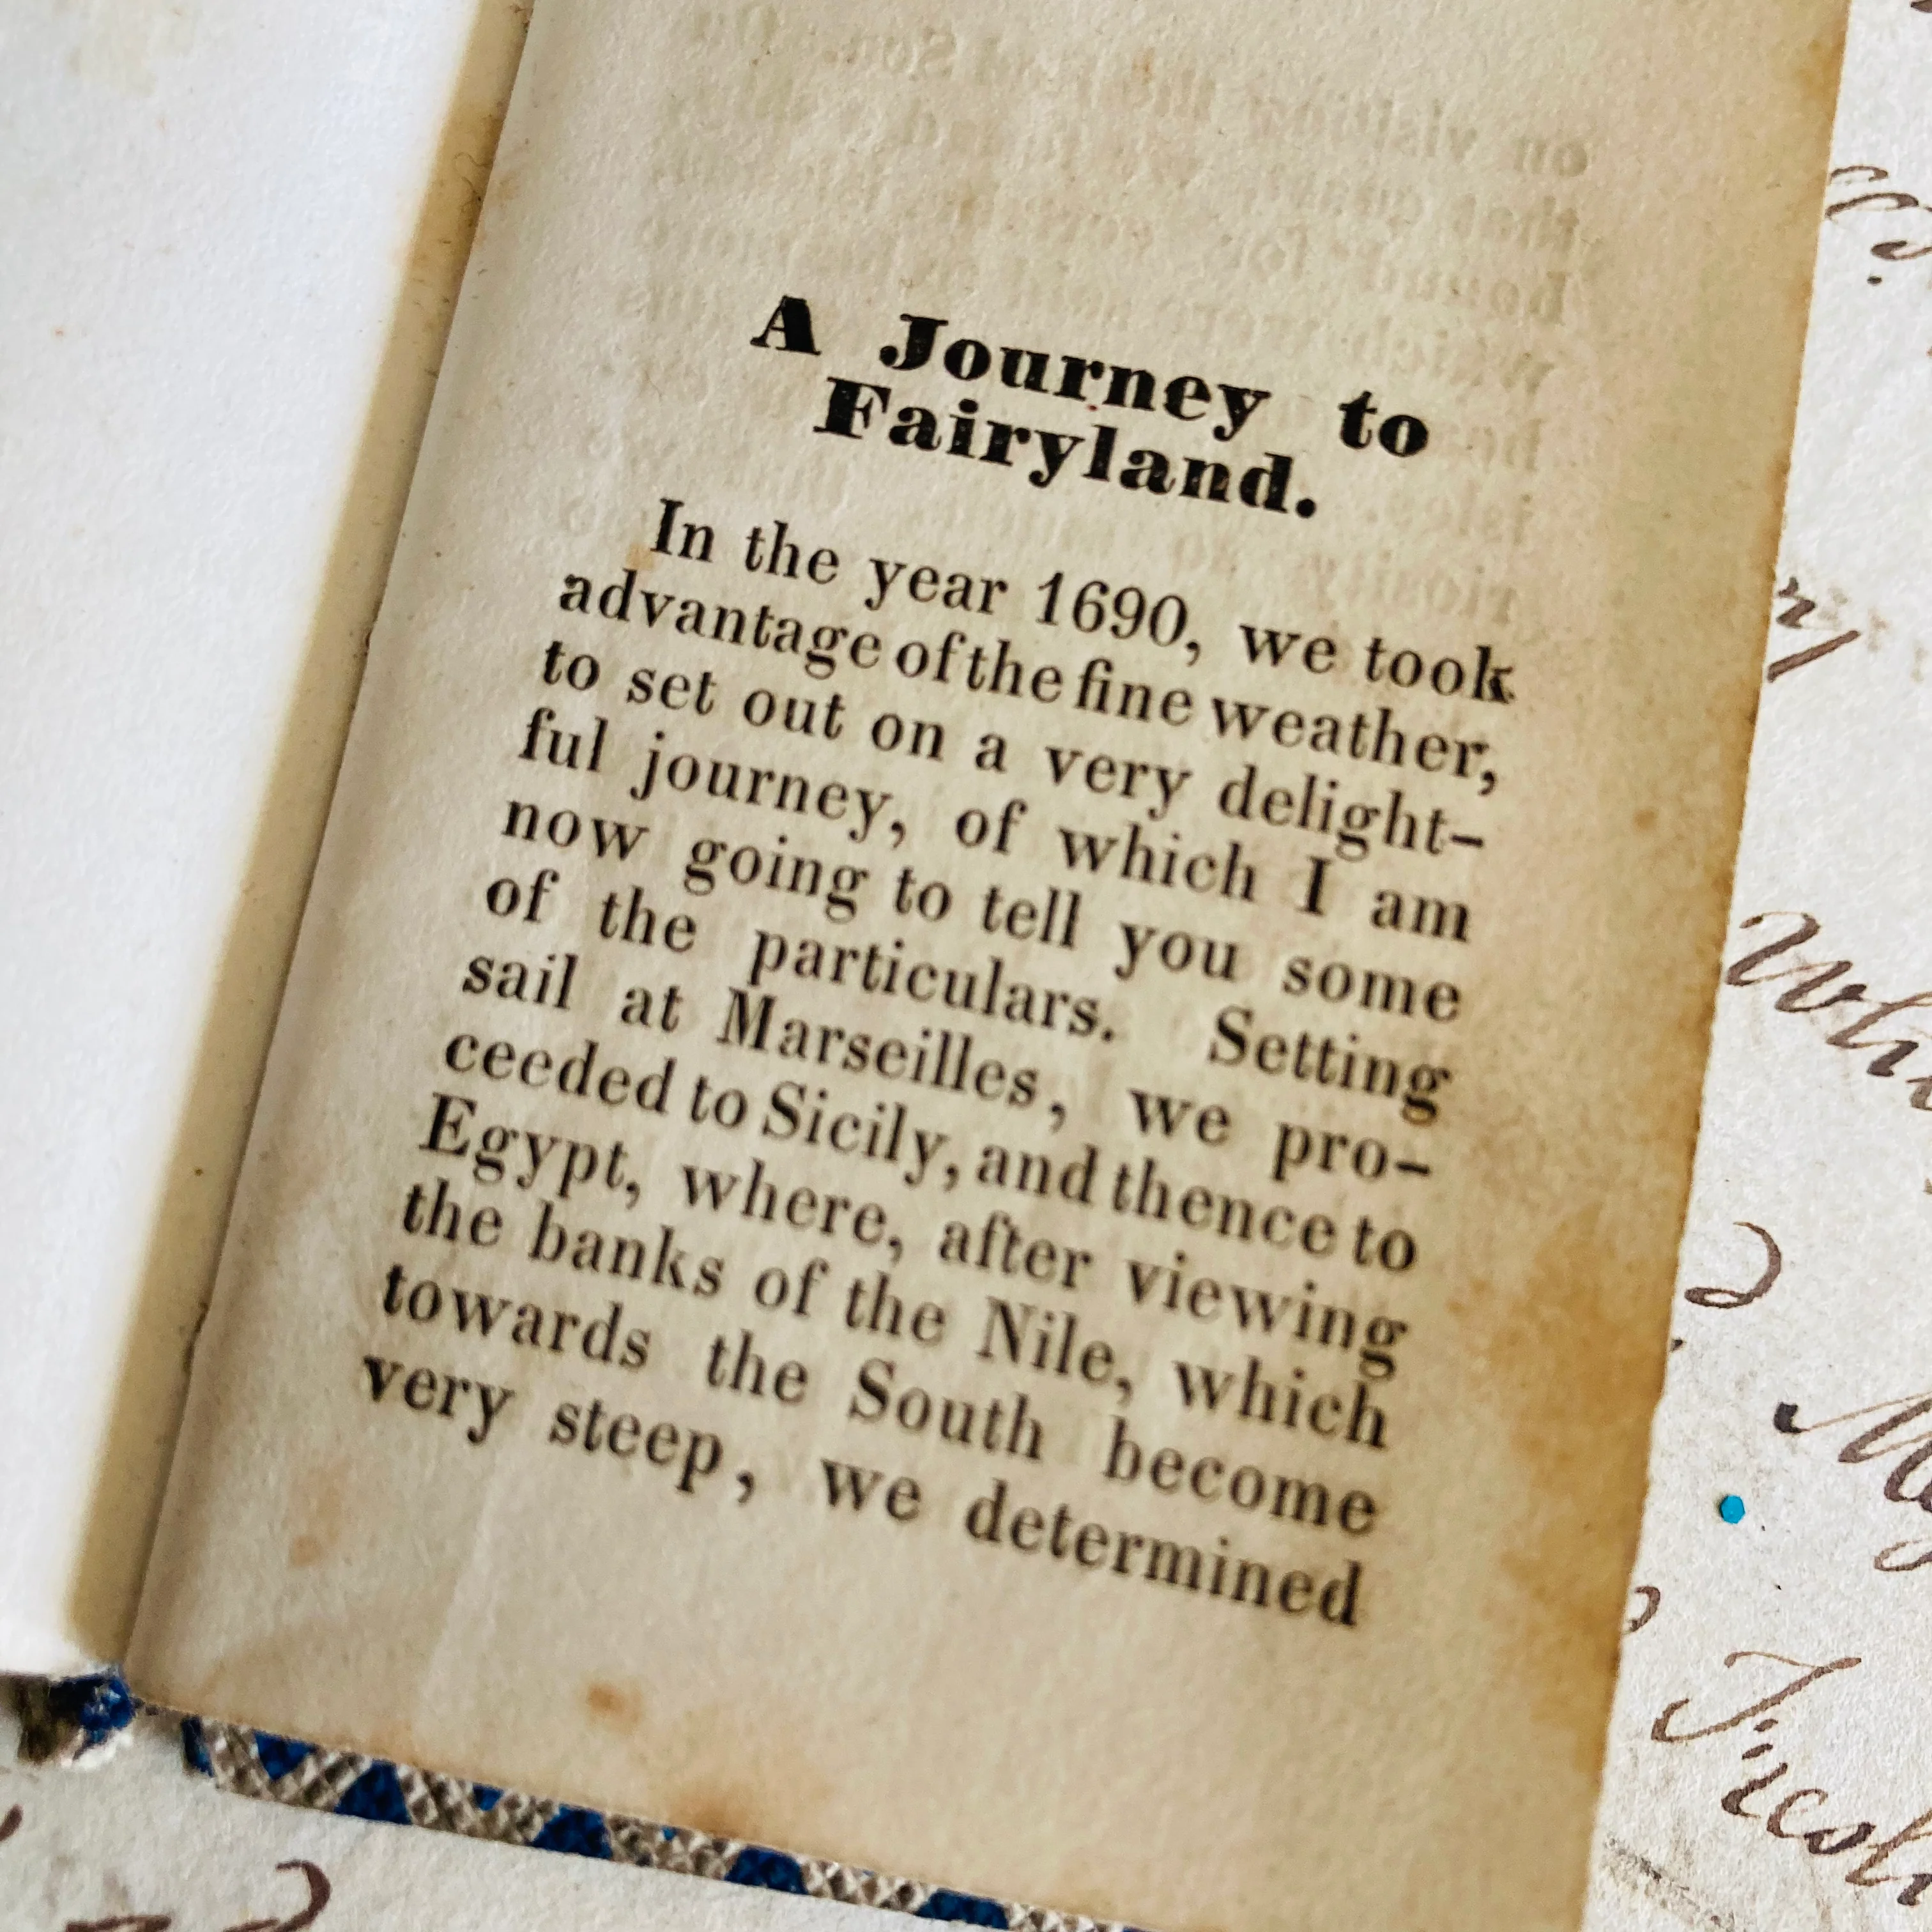 A Journey to
Fairyland.
In the year 1690, we took
advantage of the fine weather,
to set out on a very delight-
ful journey, of which I am
now going to tell you some
of the particulars. Setting
sail at Marseilles, we pro-
ceeded to Sicily, and thence to
Egypt, where, after viewing
the banks of the Nile, which
towards the South become
very steep, we determined